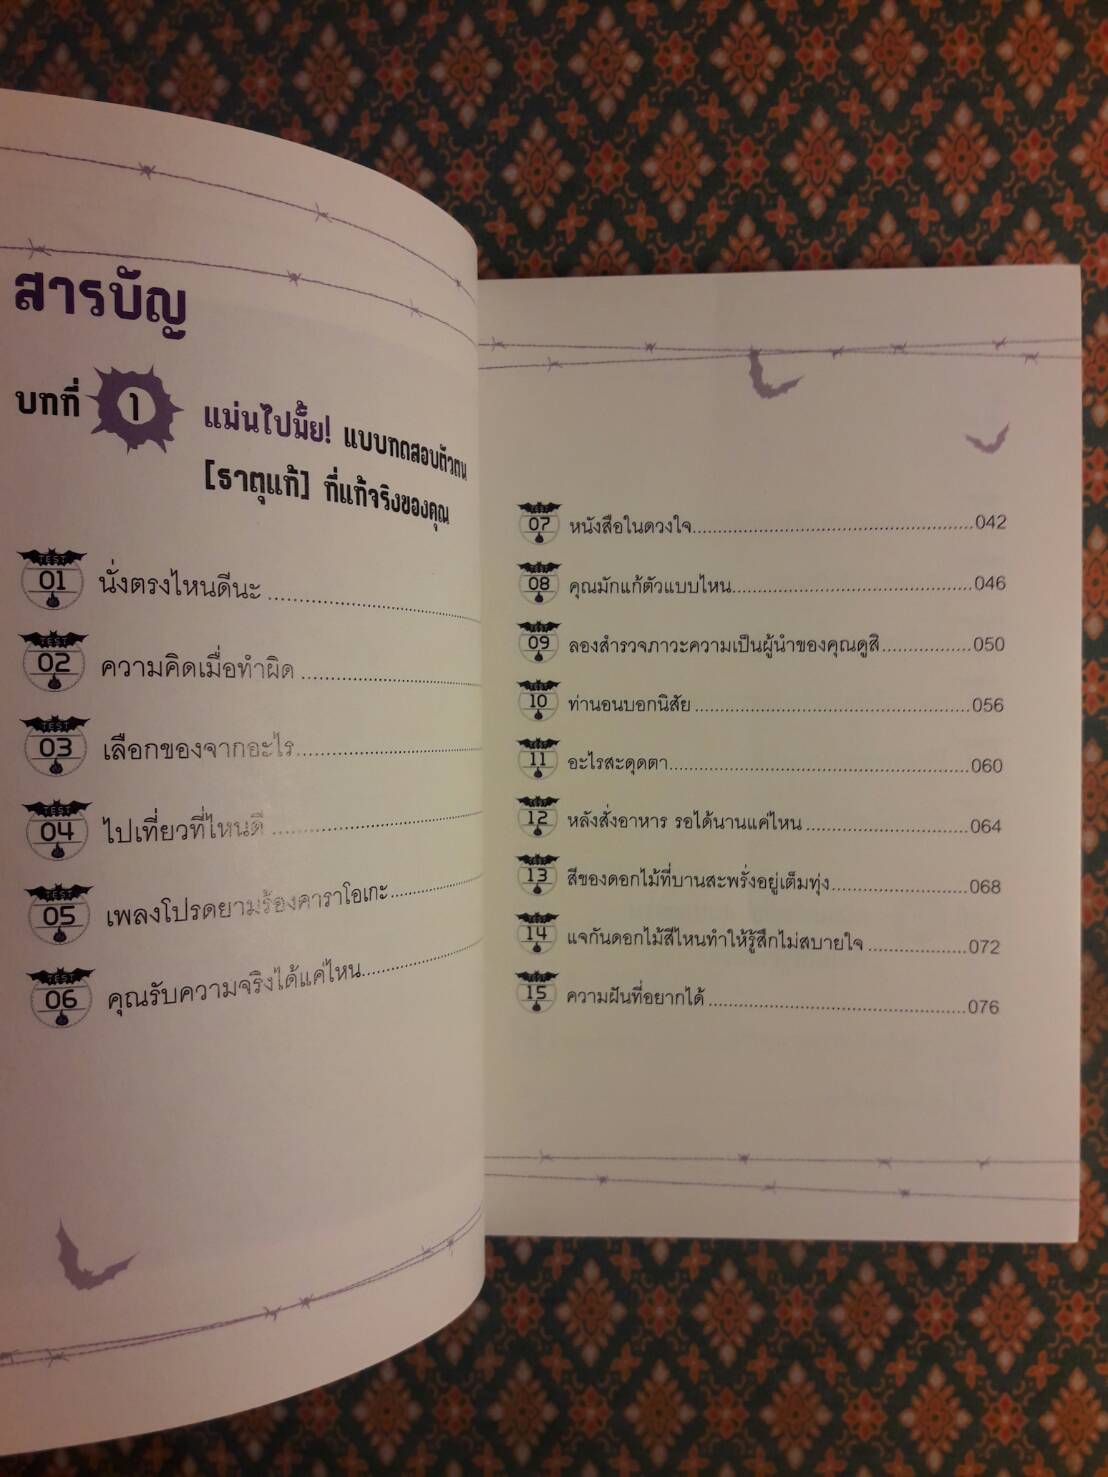 สารบัญ
บทที่ 1 แม่นไปมั้ย! แบบทดสอบตัวตน
[ธาตุแท้] ที่แท้จริงของคุณ
TEST 01 นั่งตรงไหนดีนะ
TEST 02 ความคิดเมื่อทำผิด
TEST 03 เลือกของจากอะไร
TEST 04 ไปเที่ยวที่ไหนดี
TEST 05 เพลงโปรดยามร้องคาราโอเกะ
TEST 06 คุณรับความจริงได้แค่ไหน
TEST 07 หนังสือในดวงใจ 042
TEST 08 คุณมักแก้ตัวแบบไหน 046
TEST 09 ลองสำรวจภาวะความเป็นผู้นำของคุณดูสิ 050
TEST 10 ท่านอนบอกนิสัย 056
TEST 11 อะไรสะดุดตา 060
TEST 12 หลังสั่งอาหาร รอได้นานแค่ไหน 064
TEST 13 สีของดอกไม้ที่บานสะพรั่งอยู่เต็มทุ่ง 068
TEST 14 แจกันดอกไม้สีไหนทำให้รู้สึกไม่สบายใจ 072
TEST 15 ความฝันที่อยากได้ 076